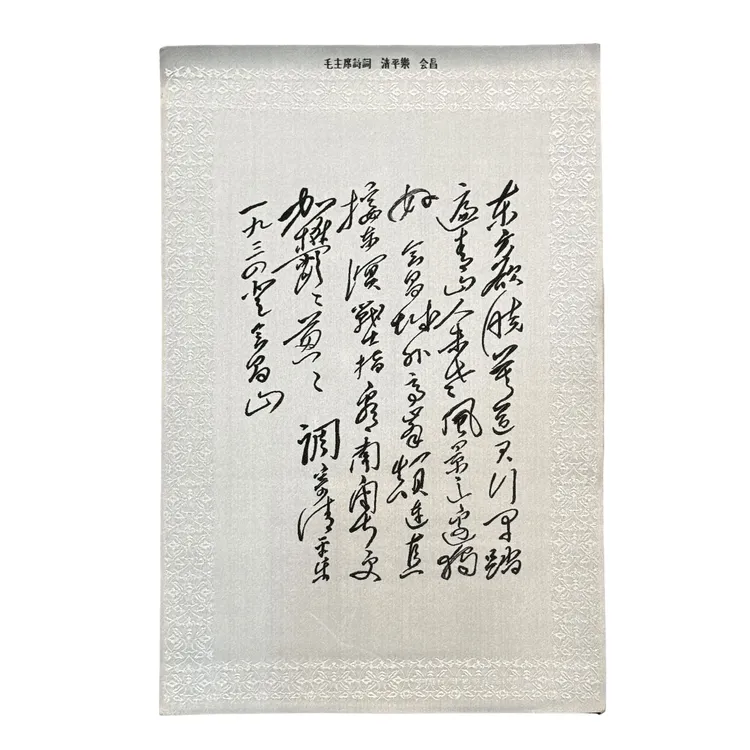 毛主席詩詞 清平樂 会昌
东方欲晓莫道君行早踏
遍青山人未老風景这邊独
好 会昌城外高峯颠连直
接东溟戰士指看南粤更
加鬱〻葱〻 調寄清平乐
一九三四登会昌山